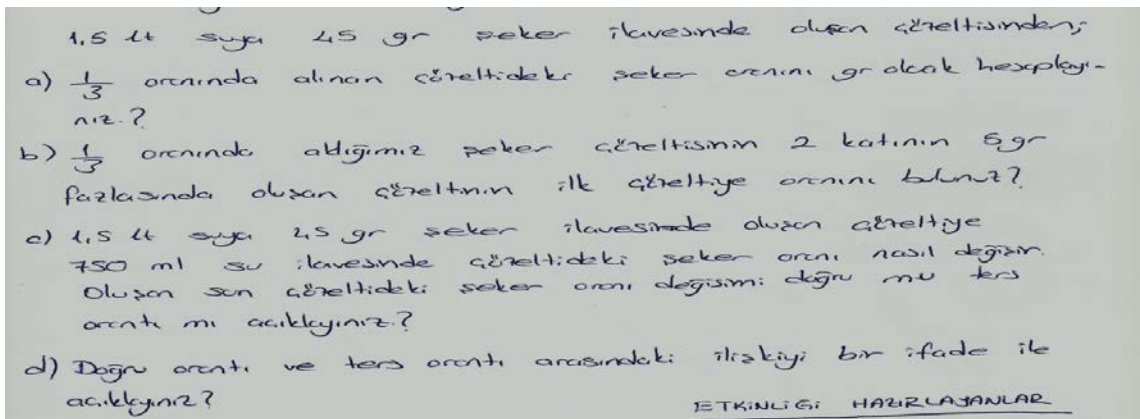 1,5 lt suya 45 gr şeker ilavesinde oluşan çözeltisinden;
a) 1/3 oranında alınan çözeltideki şeker oranını gr olarak hesaplayı-
nız.?
b) 1/3 oranında aldığımız şeker çözeltisinin 2 katının 5 gr
fazlasında oluşan çözeltinin ilk çözeltiye oranını bulunuz?
c) 1,5 lt suya 45 gr şeker ilavesinde oluşan çözeltiye
750 ml su ilavesinde çözeltideki şeker oranı nasıl değişir.
Oluşan son çözeltideki şeker oranı değişimi doğru mu ters
orantı mı açıklayınız.?
d) Doğru orantı ve ters orantı arasındaki ilişkiyi bir ifade ile
açıklayınız?
ETKİNLİĞİ HAZIRLAYANLAR